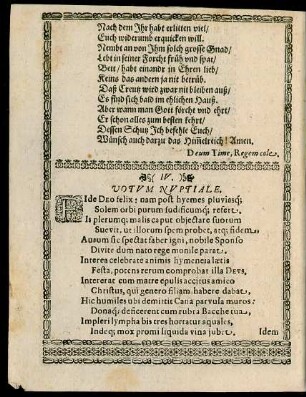 Nach dem Ihr habt erlitten viel/
Euch widerumb erquicken will.
Nembt an von Ihm solch grosse Gnad/
Lebt in seiner Forcht früh vnd spat/
Bett/ habt einandr in Ehren lieb/
Keins das andern ja nit betrüb.
Daß Creutz wird zwar nit bleiben auß/
Es find sich bald im ehlichen Hauß.
Aber wann man Gott förcht vnd ehrt/
Er schon alles zum besten kehrt/
Dessen Schutz Ich befehle Euch/
Wünsch auch darzu das Him̃elreich! Amen.
Deum Time, Regem cole.
IV.
VOTVM NVPTIALE.
FIde DEO felix: nam post hyemes pluviasq́;
Solem orbi purum lucificumq́; refert.
Is plerumq; malis caput objectare suorum
Suevit, ut illorum spem probet, atq; fidem.
Aurum sic spectat faber igni, nobile Sponso
Divite dum nato rege monile parat.
Interea celebrate animis hymenæa lætis
Festa, potens rerum comprobat illa DEVS,
Intererat cum matre epulis accitus amico
Christus, qui genero filiam habere dabat,
Hic humiles ubi demittit Cana parvula muros:
Donaq́; deficerent cum rubra Bacche tua,
Impleri lympha bis tres hortatur aquales,
Indeq́; mox promi liquida vina jubet.
Idem